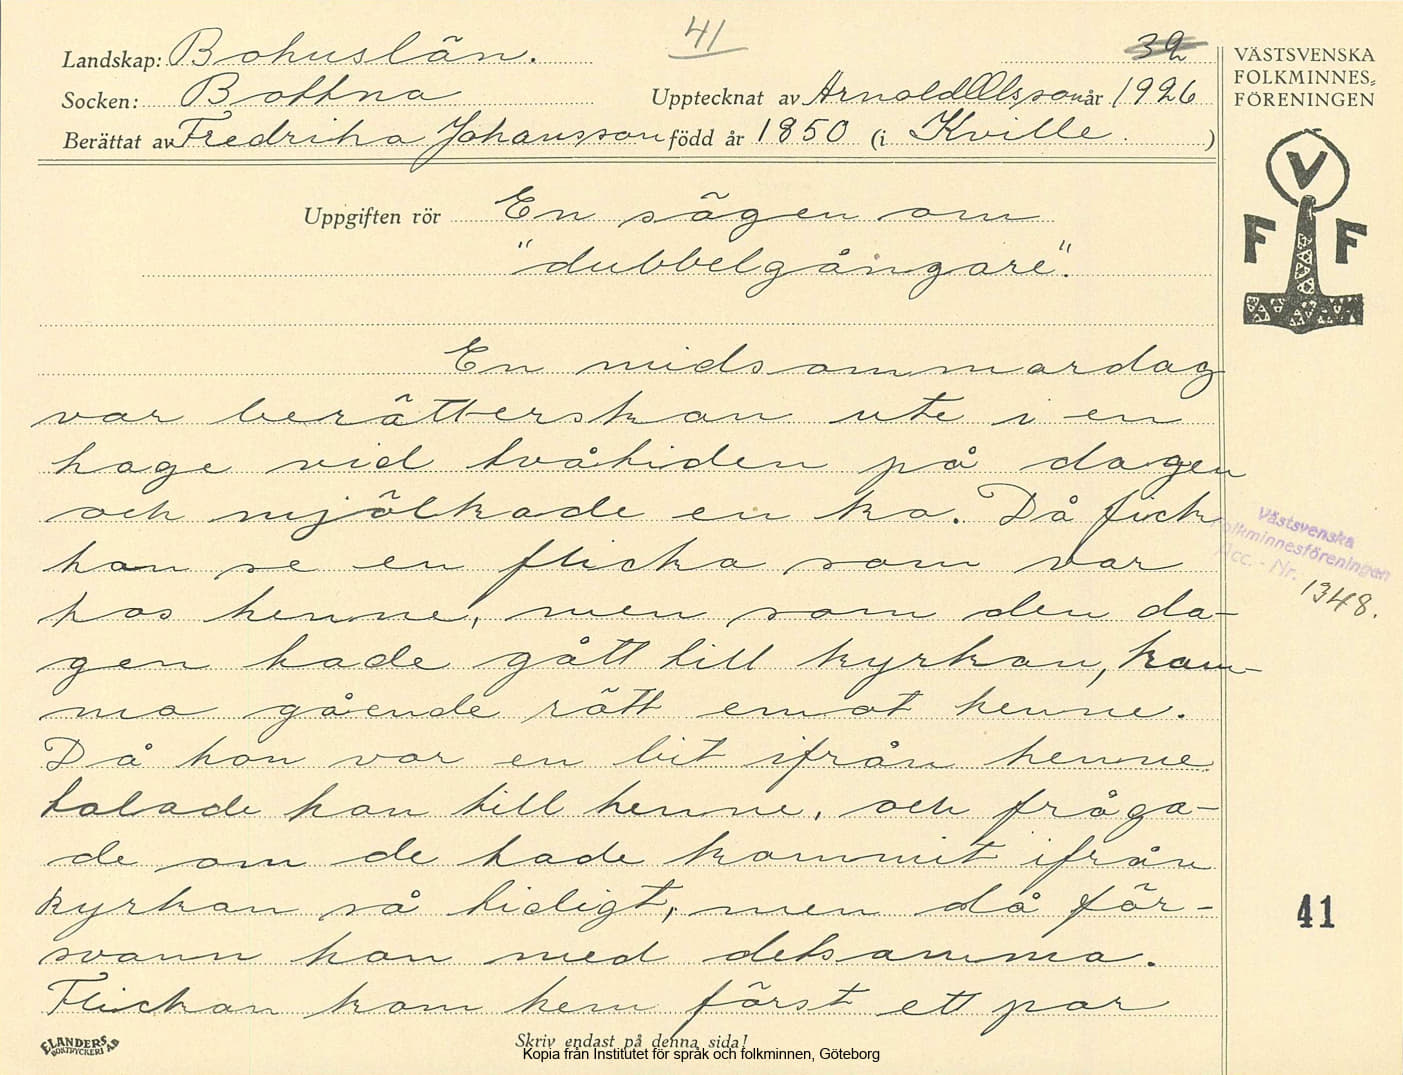 41
32
Landskap: Bohuslän.
Socken: Bottna
Upptecknat av Arnold Olsson år 1926
Berättat av Fredrika Johansson född år 1850 (i Kville. )
VÄSTSVENSKA
FOLKMINNES-
FÖRENINGEN
V
F F
Uppgiften rör En sägen om
"dubbelgångare".
En midsommardag
var berätterskan ute i en
hage vid tvåtiden på dagen
och mjölkade en ko. Då fick
hon se en flicka som var
hos henne, men som den da-
gen hade gått till kyrkan, kom-
ma gående rätt emot henne.
Då hon var en bit ifrån henne
talade hon till henne, och fråga-
de om de hade kommit ifrån
kyrkan så tidigt, men då för-
svann hon med detsamma.
Flickan kom hem först ett par
Västsvenska
Folkminnesföreningen
Acc. - Nr. 1348.
41
ELANDERS
BOKTRYCKERI AB
Skriv endast på denna sida!
Kopia från Institutet för språk och folkminnen, Göteborg